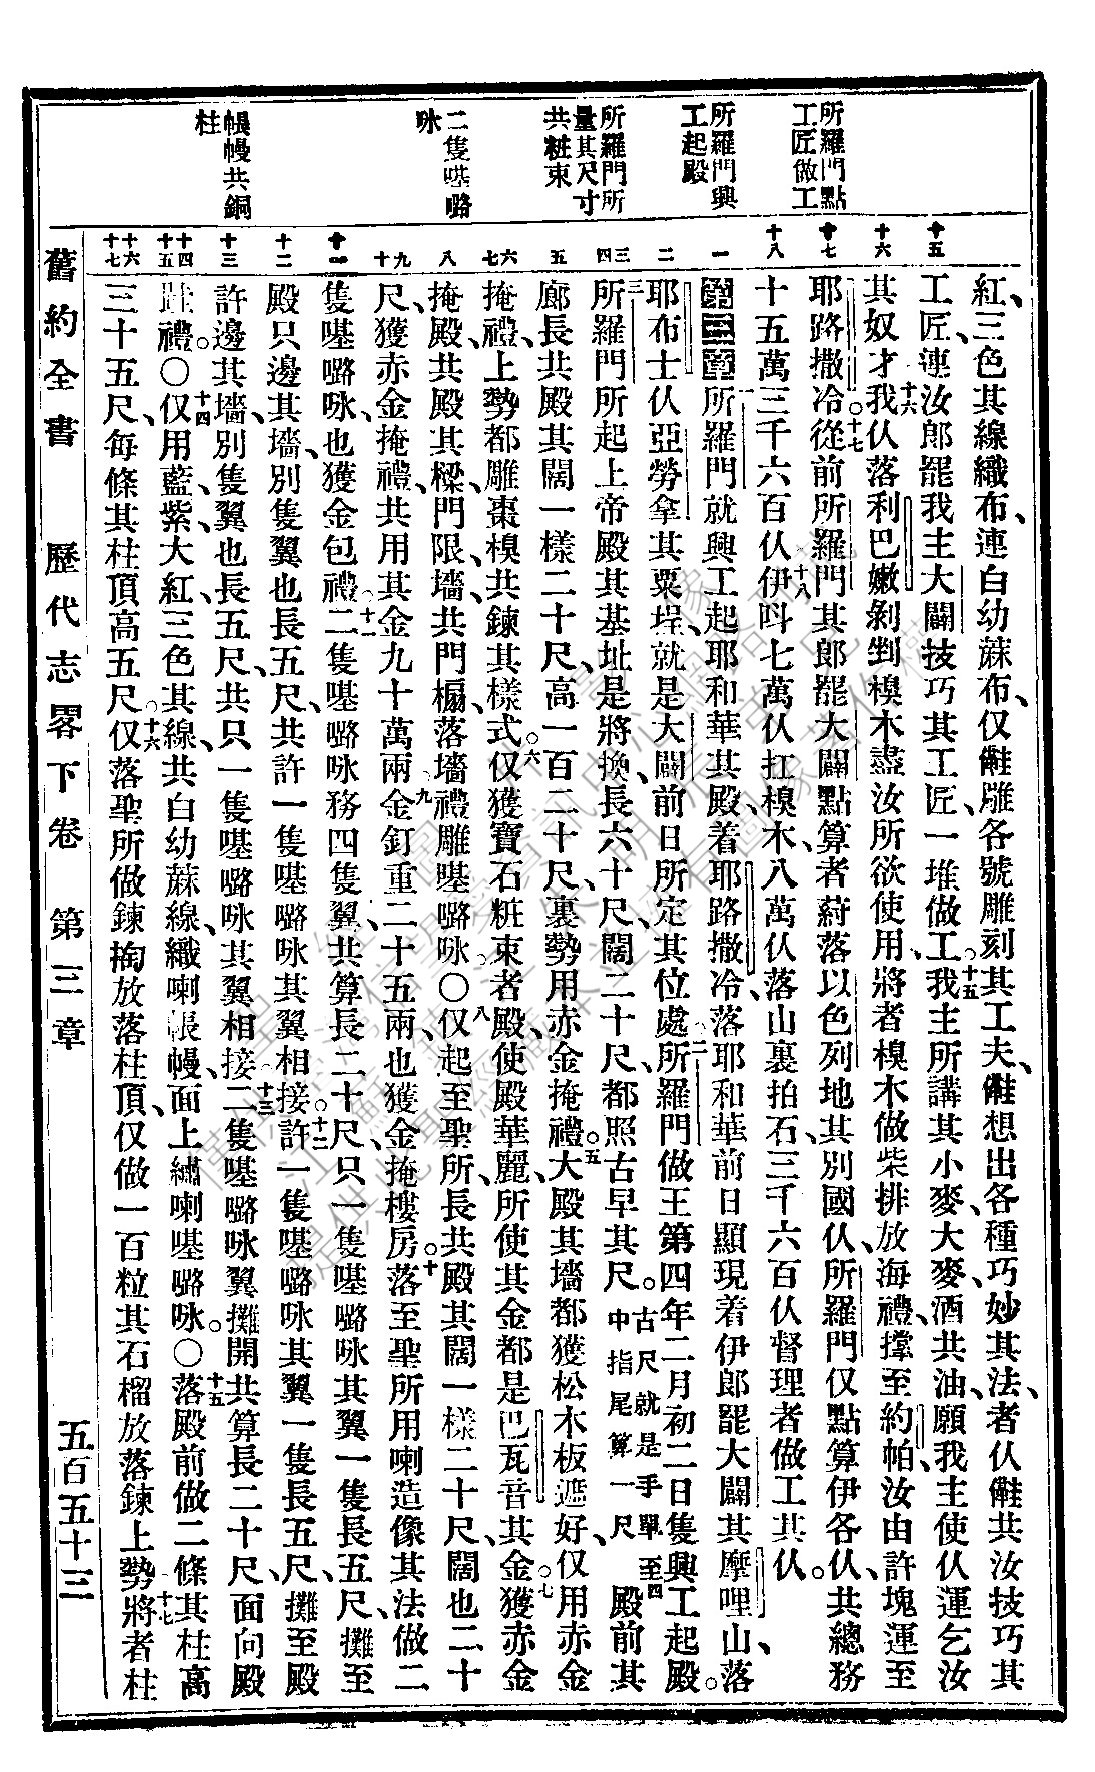 所羅門點
工匠做工
所羅門興
工起殿
所羅門所
量其尺寸
共粧束
二隻𠸄𡀔
咏
帳幔共銅
柱
十五
十六
十七
十八
一
二
三
四
五
六
七
八
九
十
十一
十二
十三
十四
十五
十六
十七
紅、三色其線織布、連白幼蔴布、仅雕各號雕刻其工夫、想出各種巧妙其法、者仈共汝技巧其
工匠、連汝郎罷我主大闢技巧其工匠、一堆做工。十五我主所講其小麥、大麥、酒共油、願我主使仈運乞汝
其奴才、十六我仈落利巴嫩剝剉樣木、盡汝所欲使用、將者樣木做柴排、放海禮撑至約帕、汝由許塊運至
耶路撒冷。十七從前所羅門其郎罷大闢點算者蔚落以色列地其別國仈、所羅門仅點算伊各仈、共總務
十五萬三千六百仈、十八伊叫七萬仈扛樣木、八萬仈落山裏拍石、三千六百仈督理者做工其仈。
第三章 所羅門就興工起耶和華其殿、着耶路撒冷、落耶和華前日顯現着伊郎罷大闢其摩哩山、落
耶布士仈亞勞拿其粟埕、就是大闢前日所定其位處。二所羅門做王第四年二月初二日隻興工起殿。
三所羅門所起上帝殿其基址是將換、長六十尺、闊二十尺、都照古早其尺。古尺就是手睅至中指尾算一尺 四殿前其
廊、長共殿其闊一樣二十尺、高一百二十尺、裏勢用赤金掩禮。五大殿其墻都獲松木板遮好、仅用赤金
掩禮、上勢都雕棗樣共鍊其樣式。六仅獲寶石粧束者殿、使殿華麗、所使其金都是巴瓦音其金。七獲赤金
掩殿、共殿其樑、門限、墻、共門榍、落墻禮雕𠸄𡀔咏。〇八仅起至聖所、長共殿其闊一樣二十尺、闊也二十
尺、獲赤金掩禮、共用其金九十萬兩、九金釘重二十五兩、也獲金掩樓房。十落至聖所用喇造像其法、做二
隻𠸄𡀔咏、也獲金包禮。十一二隻𠸄𡀔咏務四隻翼、共算長二十尺、只一隻𠸄𡀔咏其翼一隻長五尺、攤至
殿只邊其墻、別隻翼也長五尺、共許一隻𠸄𡀔咏其翼相接。十二許一隻𠸄𡀔咏其翼一隻長五尺、攤至殿
許邊其墻、別隻翼也長五尺、共只一隻𠸄𡀔咏其翼相接、十三二隻𠸄𡀔咏翼攤開共算長二十尺、面向殿
跬禮。〇十四仅用藍、紫、大紅、三色其線、共白幼蔴線、織喇帳幔、面上繡喇𠸄𡀔咏。〇十五落殿前做二條其柱、高
三十五尺、每條其柱頂高五尺。十六仅落聖所做鍊、掏放落柱頂、仅做一百粒其石榴、放落鍊上勢、十七將者柱
舊約全書 歷代志畧下卷 第三章 五百五十三